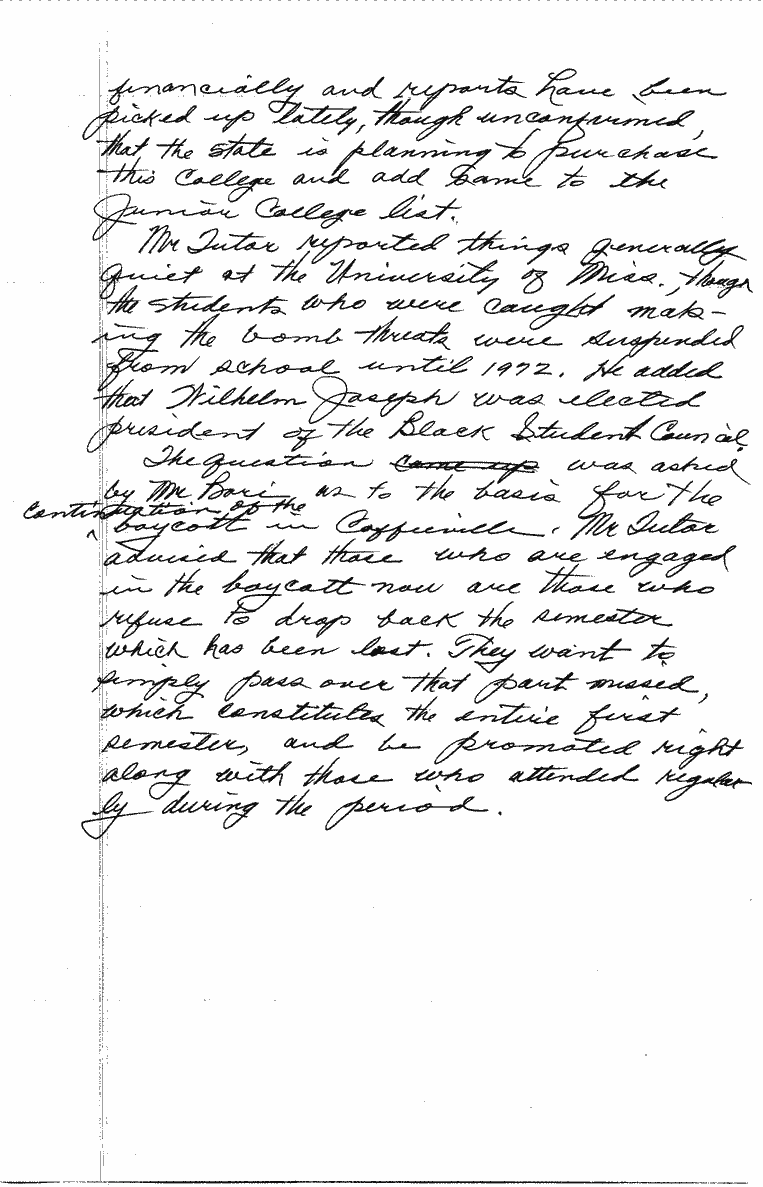 financially and reports have been
picked up lately, though unconfirmed,
that the state is planning to purchase
this College and add same to the
Junior College list.
Mr Tutor reported things generally
quiet at the University of Miss., though
the students who were caught mak-
ing the bomb threats were suspended
from school until 1972. He added
that Wilhelm Joseph was elected
president of the Black Student Council.
The question came up was asked
by Mr. Bori as to the basis for the
continuation of the
boycott in Coffieville. Mr Tutor
advised that those who are engaged
in the boycott now are those who
refuse to drop back the semester
which has been lost. They want to
simply pass over that part missed,
which constitutes the entire first
semester, and be promoted right
along with those who attended regular-
ly during the period.